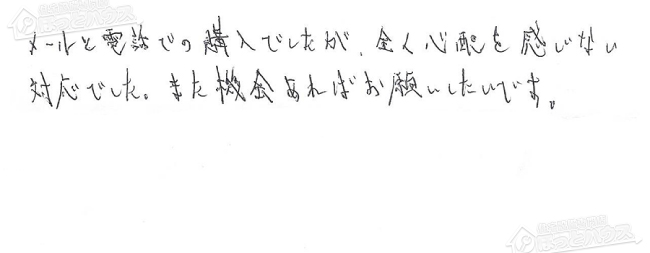 メールと電話での購入でしたが、全く心配を感じない
対応でした。また機会あればお願いしたいです。